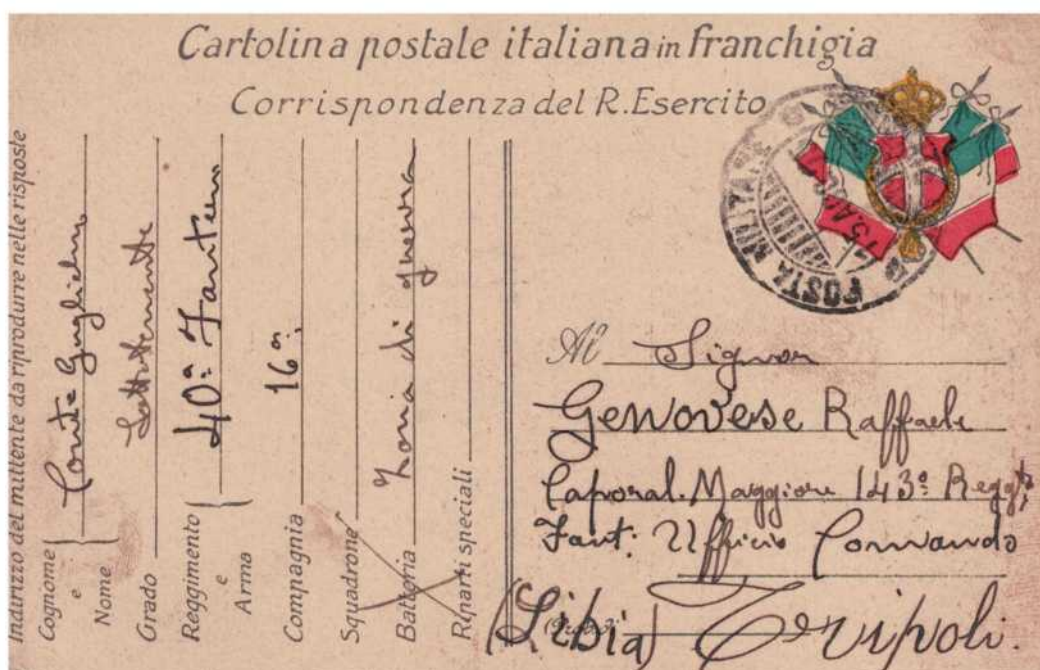 Cartolina postale italiana in franchigia
Corrispondenza del R. Esercito
POSTA MILITA
Indirizzo del mittente da riprodurre nelle risposte
Cognome e Nome Conte Guglielmo
Grado Sottotenente
Reggimento e Arma 40° Fanteria
Compagnia 16ª
Squadrone
Batteria Zona di guerra
Riparti speciali
Al Signor
Genovese Raffaele
Caporal. Maggiore 143° Reggt
Fant: Ufficio Comando
(Libia) Tripoli.